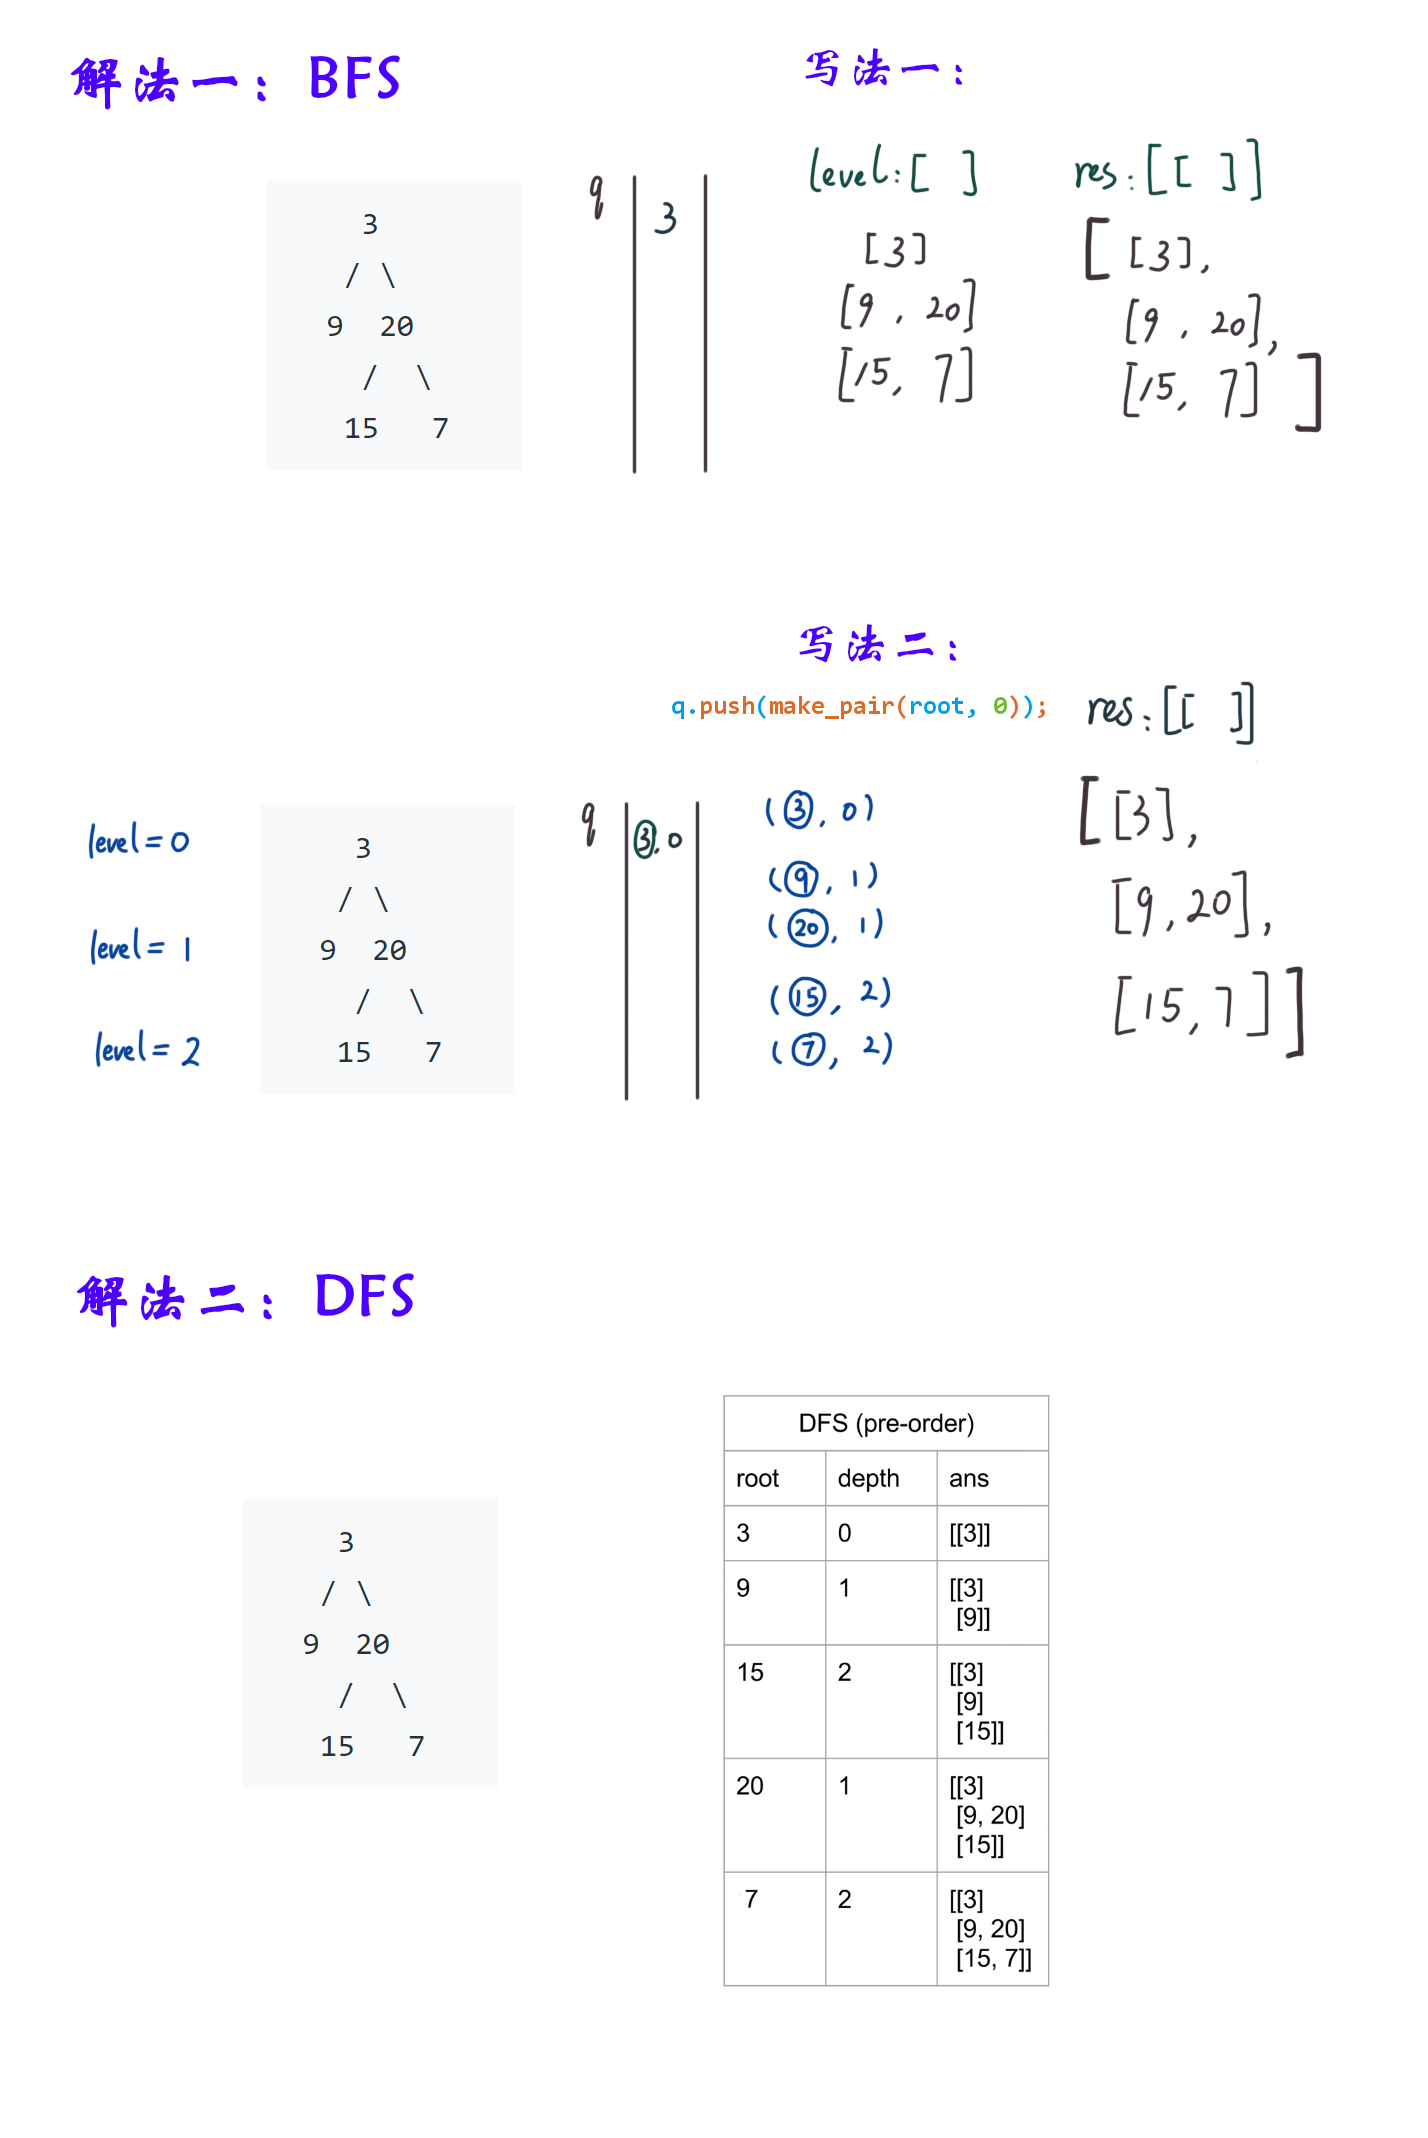 解法一：BFS
写法一：
level:[ ]
res:[[ ]]
q
3
3
/ \
9 20
/ \
15 7
[3]
[9 , 20]
[15, 7]
[[3],
[9 , 20],
[15, 7]]
写法二：
q.push(make_pair(root, 0));
res:[[ ]]
level=0
level=1
level=2
3
/ \
9 20
/ \
15 7
q
3,0
(3, 0)
(9, 1)
(20, 1)
(15, 2)
(7, 2)
[[3],
[9,20],
[15,7]]
解法二：DFS
3
/ \
9 20
/ \
15 7
DFS (pre-order)
root depth ans
3 0 [[3]]
9 1 [[3]
[9]]
15 2 [[3]
[9]
[15]]
20 1 [[3]
[9, 20]
[15]]
7 2 [[3]
[9, 20]
[15, 7]]